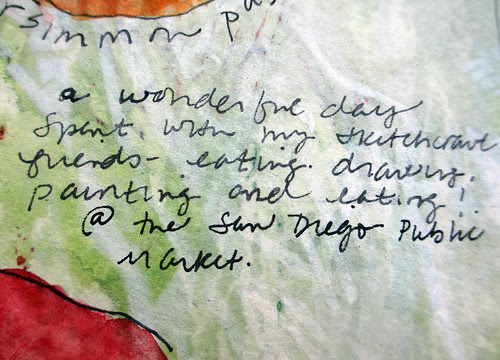 rsimmon pa
a wonderful day
spent. with my sketchcrawl
friends - eating. drawing.
painting and eating!
@ the San Diego Public
Market.